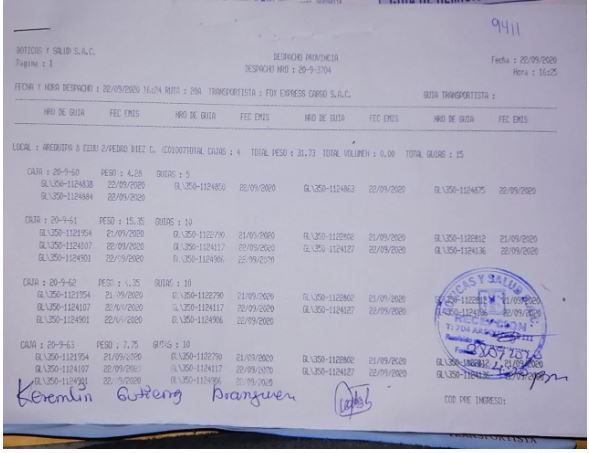 9411
BOTICAS Y SALUD S.A.C.
Pagina : 1
DESPACHO PROVINCIA
DESPACHO NRO : 20-9-3704
Fecha : 22/09/2020
Hora : 16:25
FECHA Y HORA DESPACHO : 22/09/2020 16:24 RUTA : 20A TRANSPORTISTA : FOX EXPRESS CARGO S.A.C. GUIA TRANSPORTISTA :
NRO DE GUIA FEC EMIS NRO DE GUIA FEC EMIS NRO DE GUIA FEC EMIS NRO DE GUIA FEC EMIS
LOCAL : AREQUIPA 8 CERV 2/PEDRO DIEZ C. TOTAL CAJAS : 4 TOTAL PESO : 31.73 TOTAL VOLUMEN : 0.00 TOTAL GUIAS : 15
CAJA : 20-9-60 PESO : 4.28 GUIAS : 5
GL\350-1124838 22/09/2020 GL\350-1124850 22/09/2020 GL\350-1124863 22/09/2020 GL\350-1124875 22/09/2020
GL\350-1124884 22/09/2020
CAJA : 20-9-61 PESO : 15.35 GUIAS : 10
GL\350-1121954 21/09/2020 GL\350-1122790 21/09/2020 GL\350-1122802 21/09/2020 GL\350-1122812 21/09/2020
GL\350-1124107 22/09/2020 GL\350-1124117 22/09/2020 GL\350-1124127 22/09/2020 GL\350-1124136 22/09/2020
GL\350-1124901 22/09/2020 GL\350-1124906 22/09/2020
CAJA : 20-9-62 PESO : 4.35 GUIAS : 10
GL\350-1121954 21/09/2020 GL\350-1122790 21/09/2020 GL\350-1122802 21/09/2020 GL\350-1122812 21/09/2020
GL\350-1124107 22/09/2020 GL\350-1124117 22/09/2020 GL\350-1124127 22/09/2020 GL\350-1124136 22/09/2020
GL\350-1124901 22/09/2020 GL\350-1124906 22/09/2020
BOTICAS Y SALUD
RECEPCION
CAJA : 20-9-63 PESO : 7.75 GUIAS : 10
GL\350-1121954 21/09/2020 GL\350-1122790 21/09/2020 GL\350-1122802 21/09/2020 GL\350-1122812 21/09/2020
GL\350-1124107 22/09/2020 GL\350-1124117 22/09/2020 GL\350-1124127 22/09/2020 GL\350-1124136 22/09/2020
GL\350-1124901 22/09/2020 GL\350-1124906 22/09/2020
Keremlin Gutierrez
COD PRE INGRESO:
TRANSPORTISTA